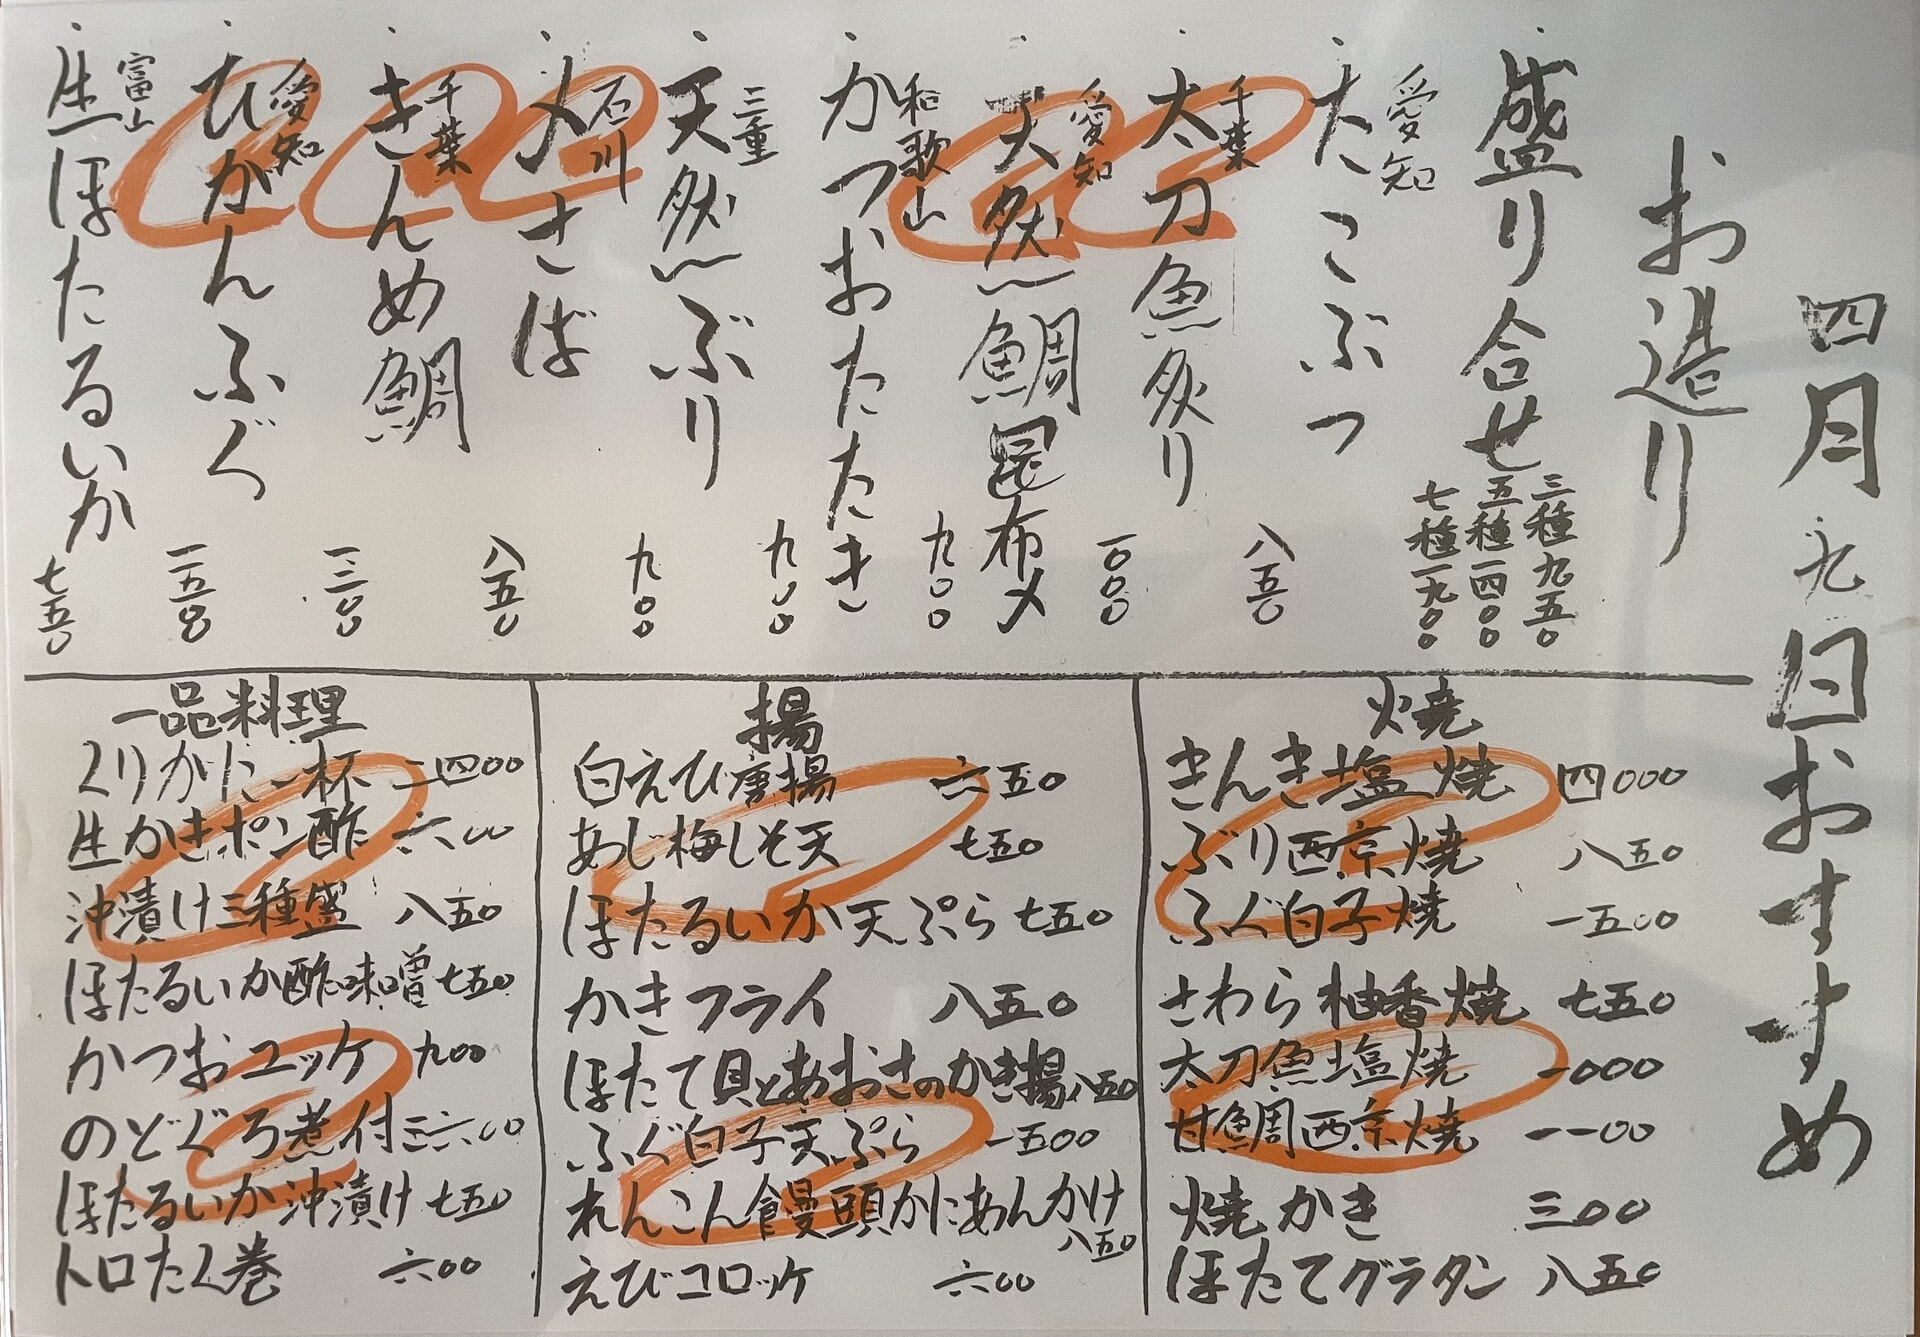 四月九日おすすめ
お造り
盛り合せ 三種九五〇 五種一四〇〇 七種一九〇〇
愛知 たこぶつ 八五〇
千葉 太刀魚炙り 一〇〇〇
愛知 天然鯛昆布〆 九〇〇
和歌山 かつおたたき 九〇〇
三重 天然ぶり 九〇〇
石川 〆さば 八五〇
千葉 きんめ鯛 一二〇〇
愛知 ひがんふぐ 一五〇〇
富山 生ほたるいか 七五〇
焼
きんき塩焼 四〇〇〇
ぶり西京焼 八五〇
ふぐ白子焼 一五〇〇
さわら柚香焼 七五〇
太刀魚塩焼 一〇〇〇
甘鯛西京焼 一一〇〇
焼かき 三〇〇
ほたてグラタン 八五〇
揚
白えび唐揚 六五〇
あじ梅しそ天 七五〇
ほたるいか天ぷら 七五〇
かきフライ 八五〇
ほたて貝とあおさのかき揚 八五〇
ふぐ白子天ぷら 一五〇〇
れんこん饅頭かにあんかけ 八五〇
えびコロッケ 六〇〇
一品料理
くりがに一杯 二四〇〇
生かきポン酢 六〇〇
沖漬け三種盛 八五〇
ほたるいか酢味噌 七五〇
かつおユッケ 九〇〇
のどぐろ煮付 三六〇〇
ほたるいか沖漬け 七五〇
トロたく巻 六〇〇